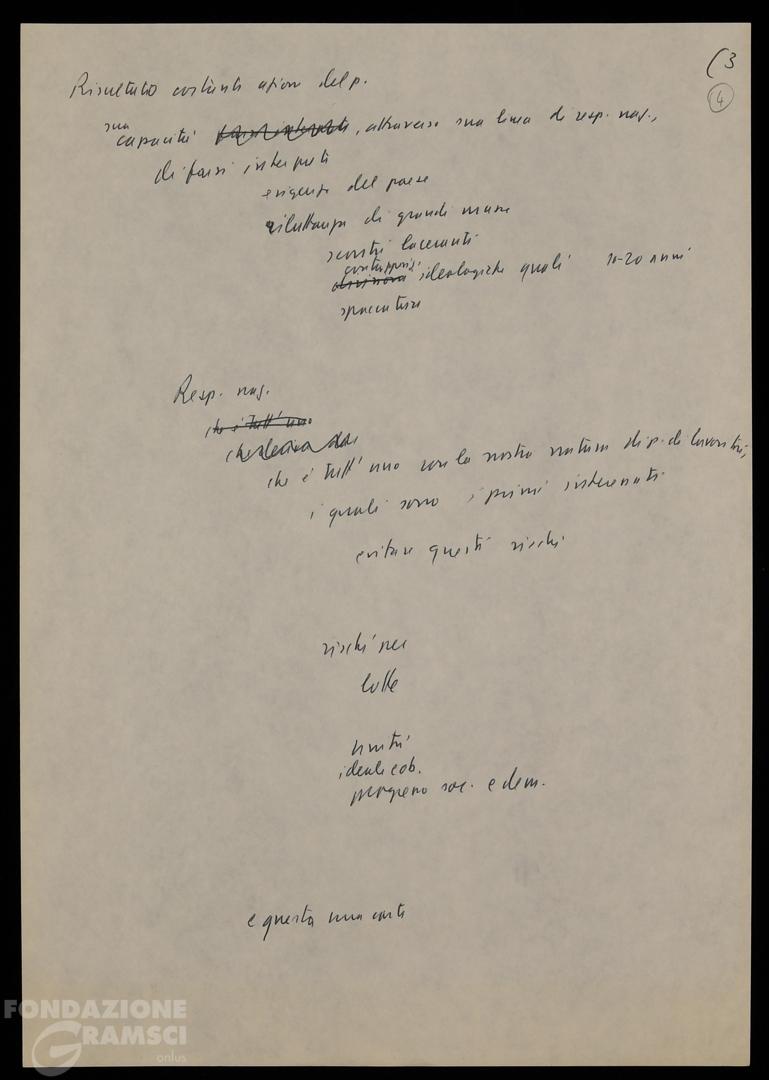 (3
4
Risultato costante azione del p.
sua
capacità, attraverso sua linea di resp. naz.,
di farsi interprete
esigenze del paese
riluttanza di grandi masse
scontri laceranti
contrapposiz.
ideologiche quali 10-20 anni
spaccature
Resp. naz.
che è tutt'uno
che è tutt'uno con la nostra natura di p. di lavoratri,
i quali sono i primi interessati
evitare questi rischi
rischi per
lotte
unità
ideali e ob.
progresso soc. e dem.
e questa una carta
FONDAZIONE
GRAMSCI
onlus